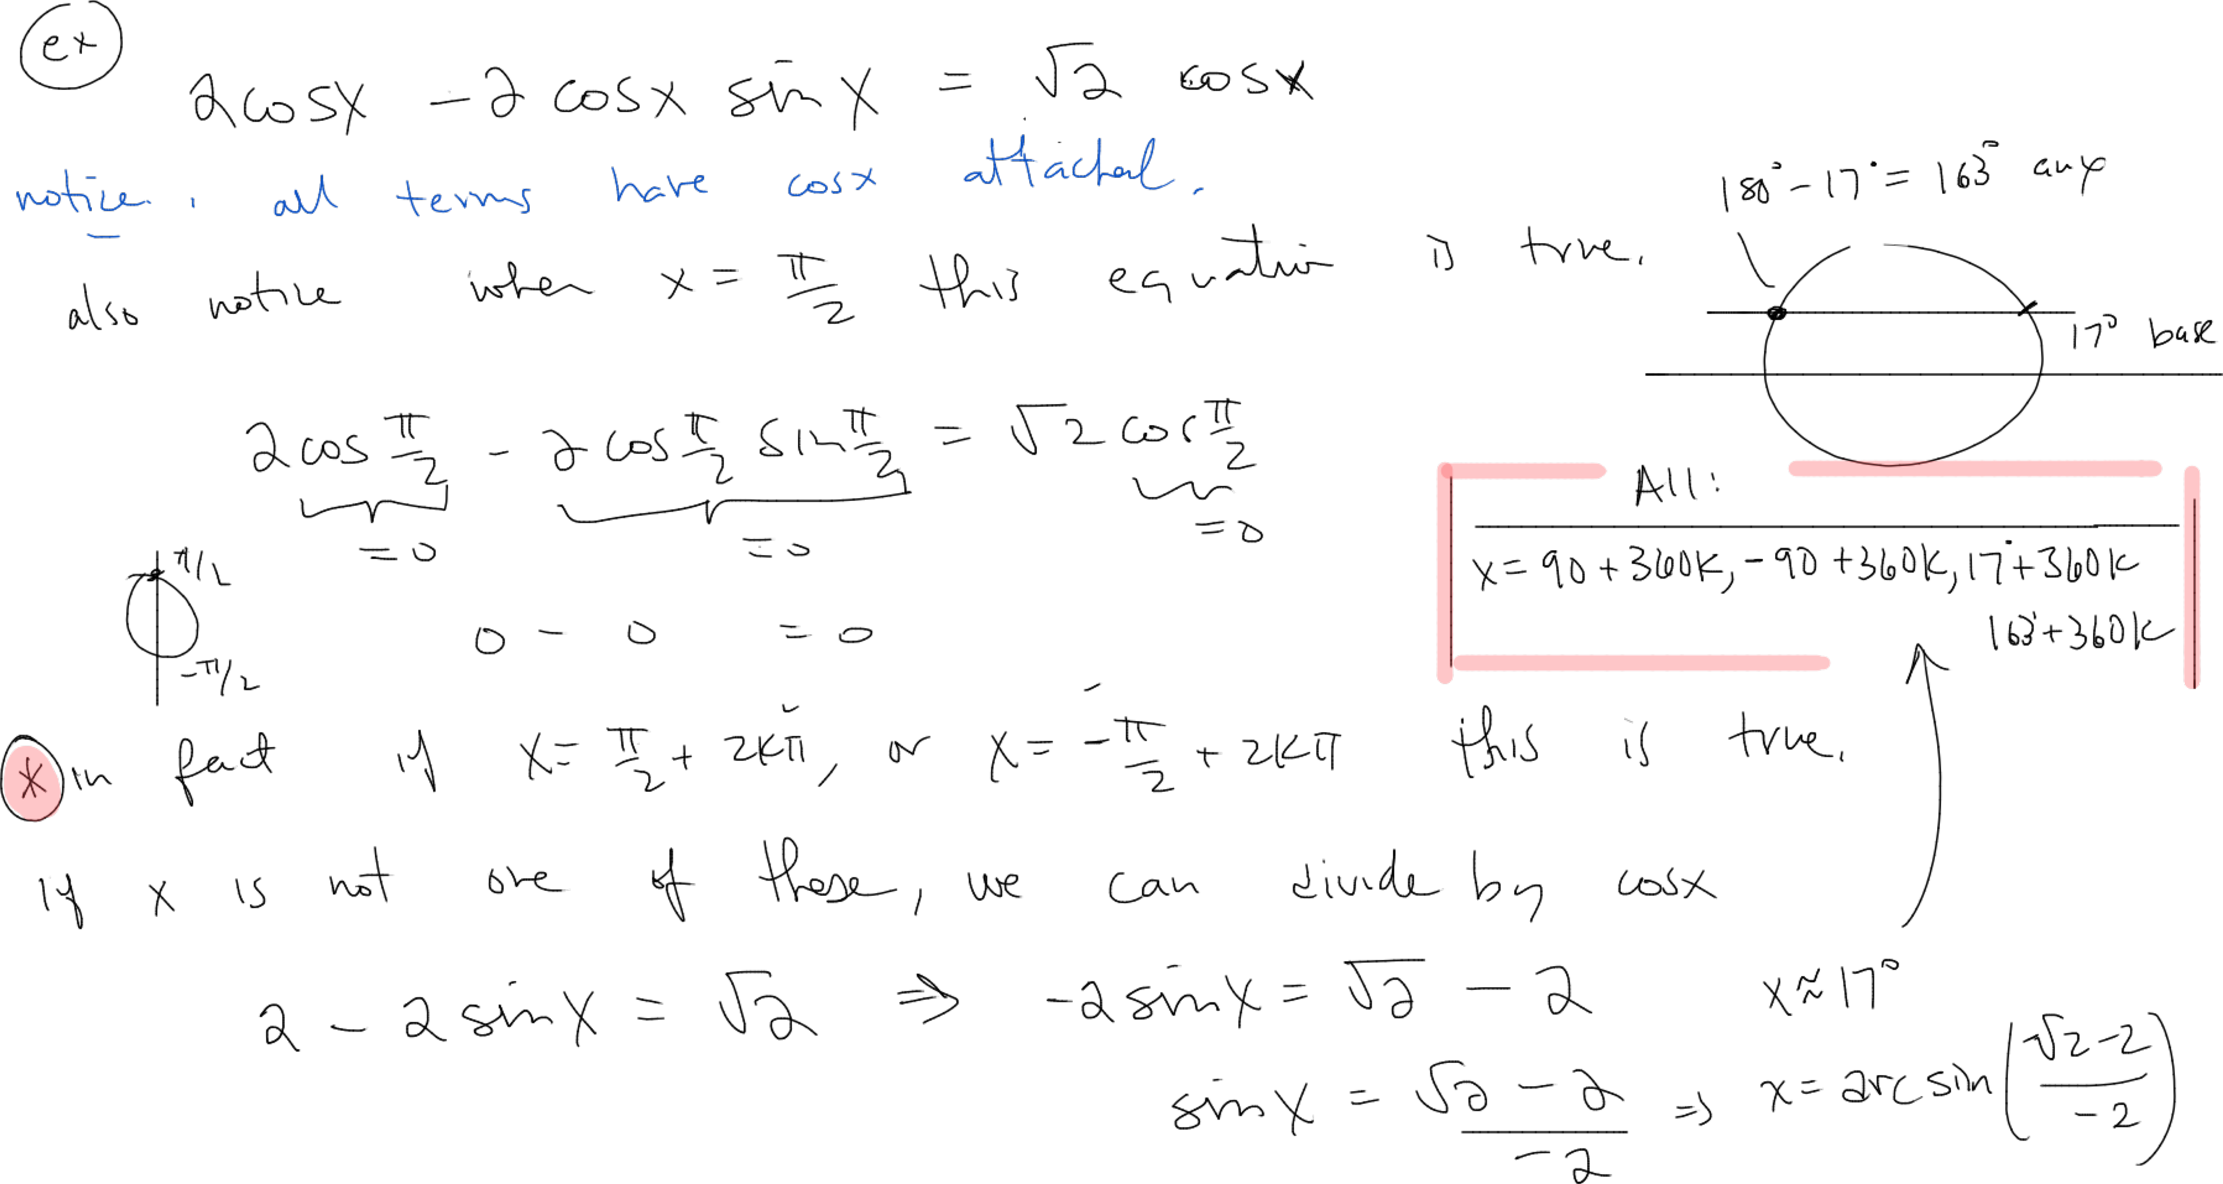 ex
2cosx - 2 cosx sin x = √2 cosx
notice. , all terms have cosx attached.
also notice when x = π/2 this equation is true.
180° - 17° = 163° aux
17° base
2 cos π/2 - 2 cos π/2 sin π/2 = √2 cos π/2
=0 =0 =0
π/2
-π/2
0 - 0 = 0
All:
x = 90 + 360K, -90 + 360K, 17° + 360K
163° + 360K
* in fact if x = π/2 + 2Kπ, or x = -π/2 + 2Kπ this is true.
if x is not one of these, we can divide by cosx
2 - 2 sin x = √2 ⇒ -2 sin x = √2 - 2
x ≈ 17°
sin x = (√2 - 2)/-2 ⇒ x = arcsin((√2-2)/-2)